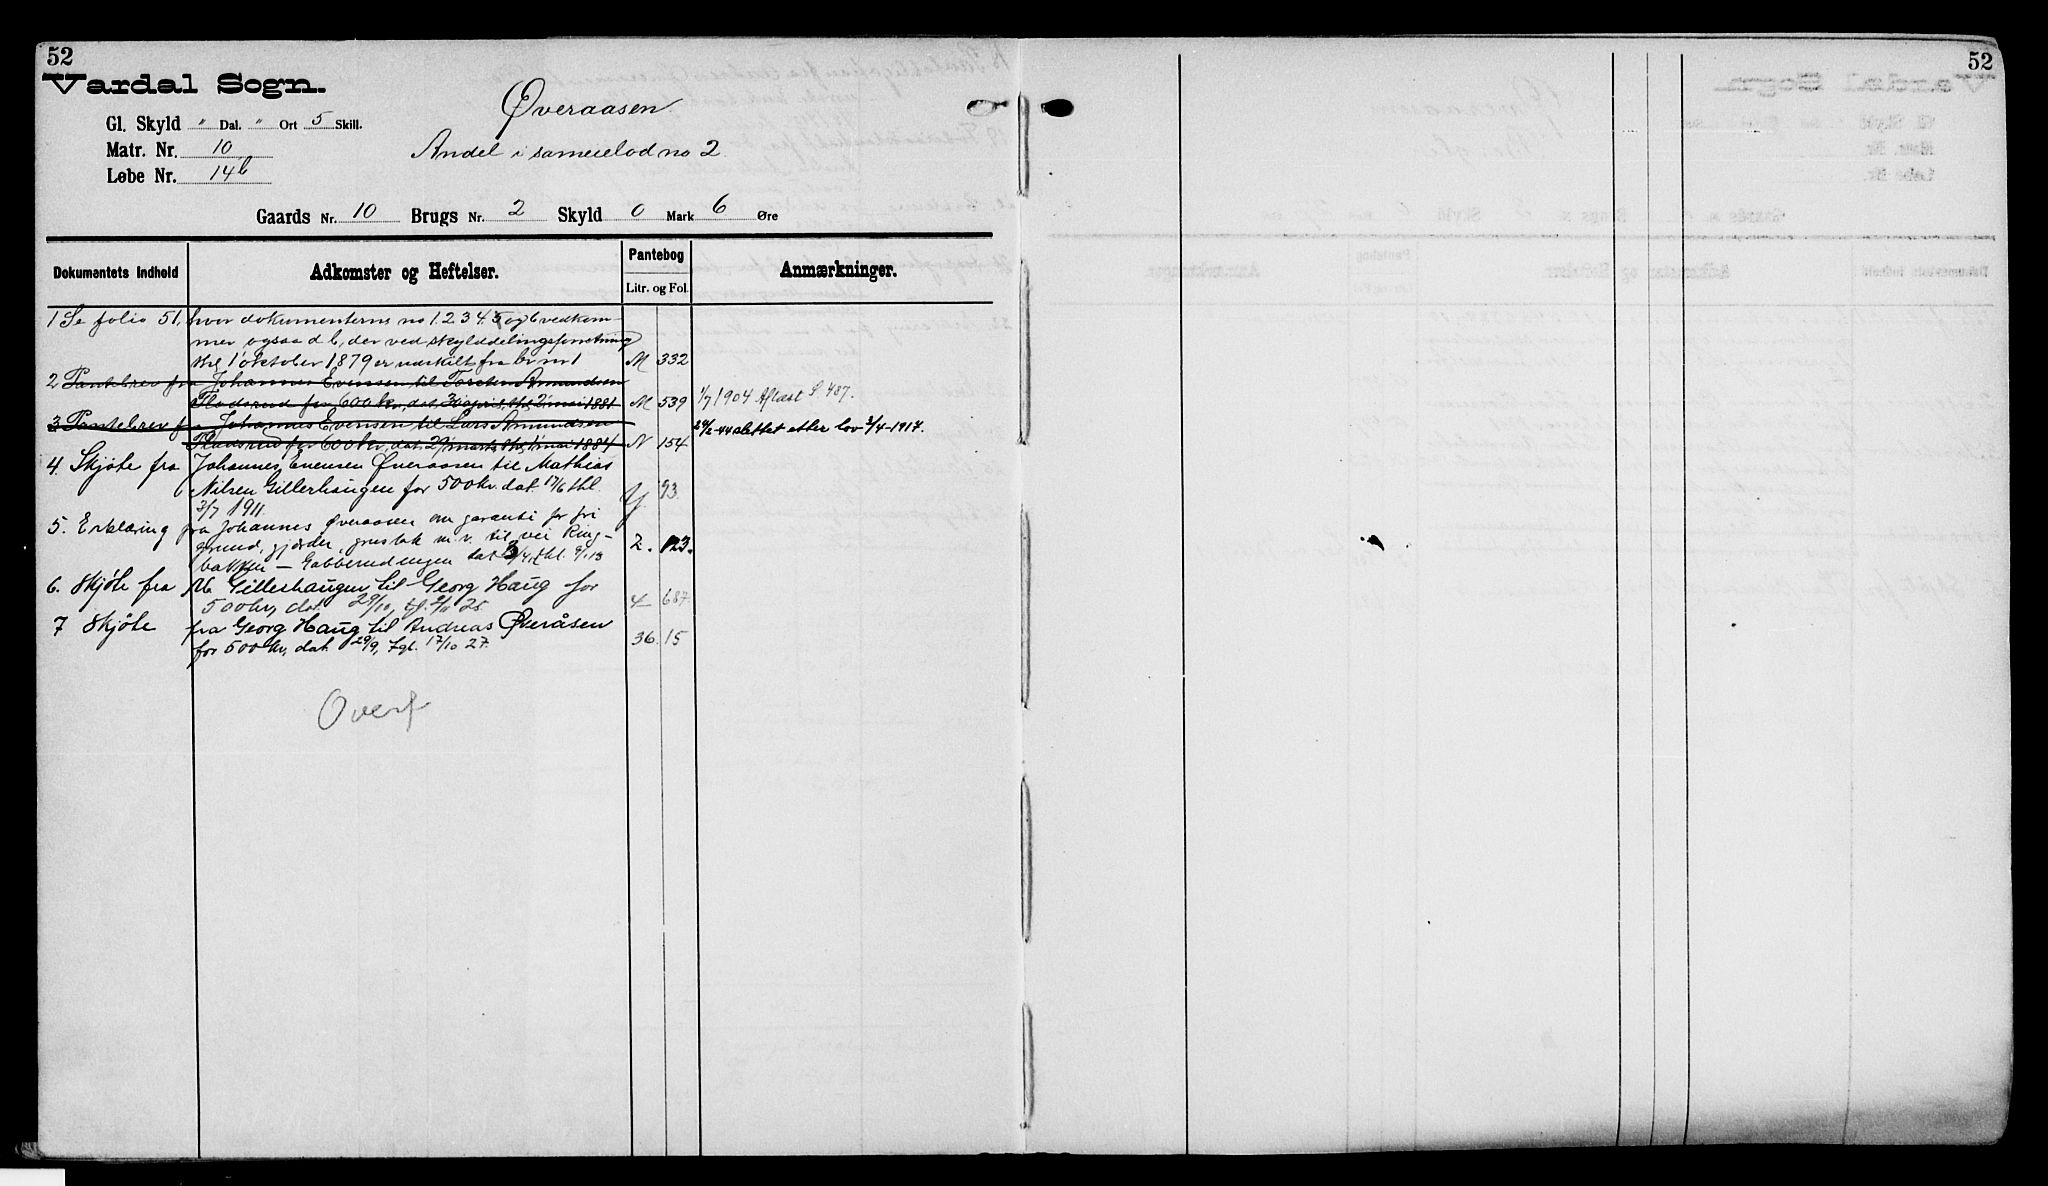 52
Vardal Sogn.
Øveraasen
Andel i sameielod no 2
Gl. Skyld " Dal. " Ort 5 Skill.
Matr. Nr. 10
Løbe Nr. 14b
Gaards Nr. 10 Brugs Nr. 2 Skyld 0 Mark 6 Øre
Dokumentets Indhold Adkomster og Heftelser. Pantebog Litr. og Fol. Anmærkninger.
1 Se folio 51, hvor dokumenterne no 1. 2 3 4. 5 og 6 vedkom-
mer ogsaa d b, der ved skylddelingsforretning
thl 1 oktober 1879 er utskilt fra br nr 1 M 332
2 Pantebrev fra Johannes Evensen til Torsten Amundsen
Fladsrud for 600 kr., dat. 30 april, thl. 2 mai 1881 M 539 1/7 1904 Aflæst S 487.
3 Pantebrev fra Johannes Evensen til Lars Amundsen
Fladsrud for 600 kr, dat. 29 marts thl. 1 mai 1884 N 154 24/2-44 slettet etter lov 2/4-1917.
4. Skjøte fra Johannes Evensen Øveraasen til Mathias
Nilsen Gillerhaugen for 500 kr. dat. 17/6 thl.
3/7 1911. Y 93.
5. Erklæring fra Johannes Øveraasen om garanti for fri
grund, gjærder, grustak m. v. til vei Ring-
bakken – Gabberudengen dat 3/4, thl. 13 2. 123.
6. Skjøte fra M. Gillerhaugen til Georg Haug for
500 kr, dat. 29/10, tgl. 25 4 687.
7 Skjøte fra Georg Haug til Andreas Øveråsen
for 500 kr, dat. 29/9, tgl. 17/10 27. 36. 15
Overf
52